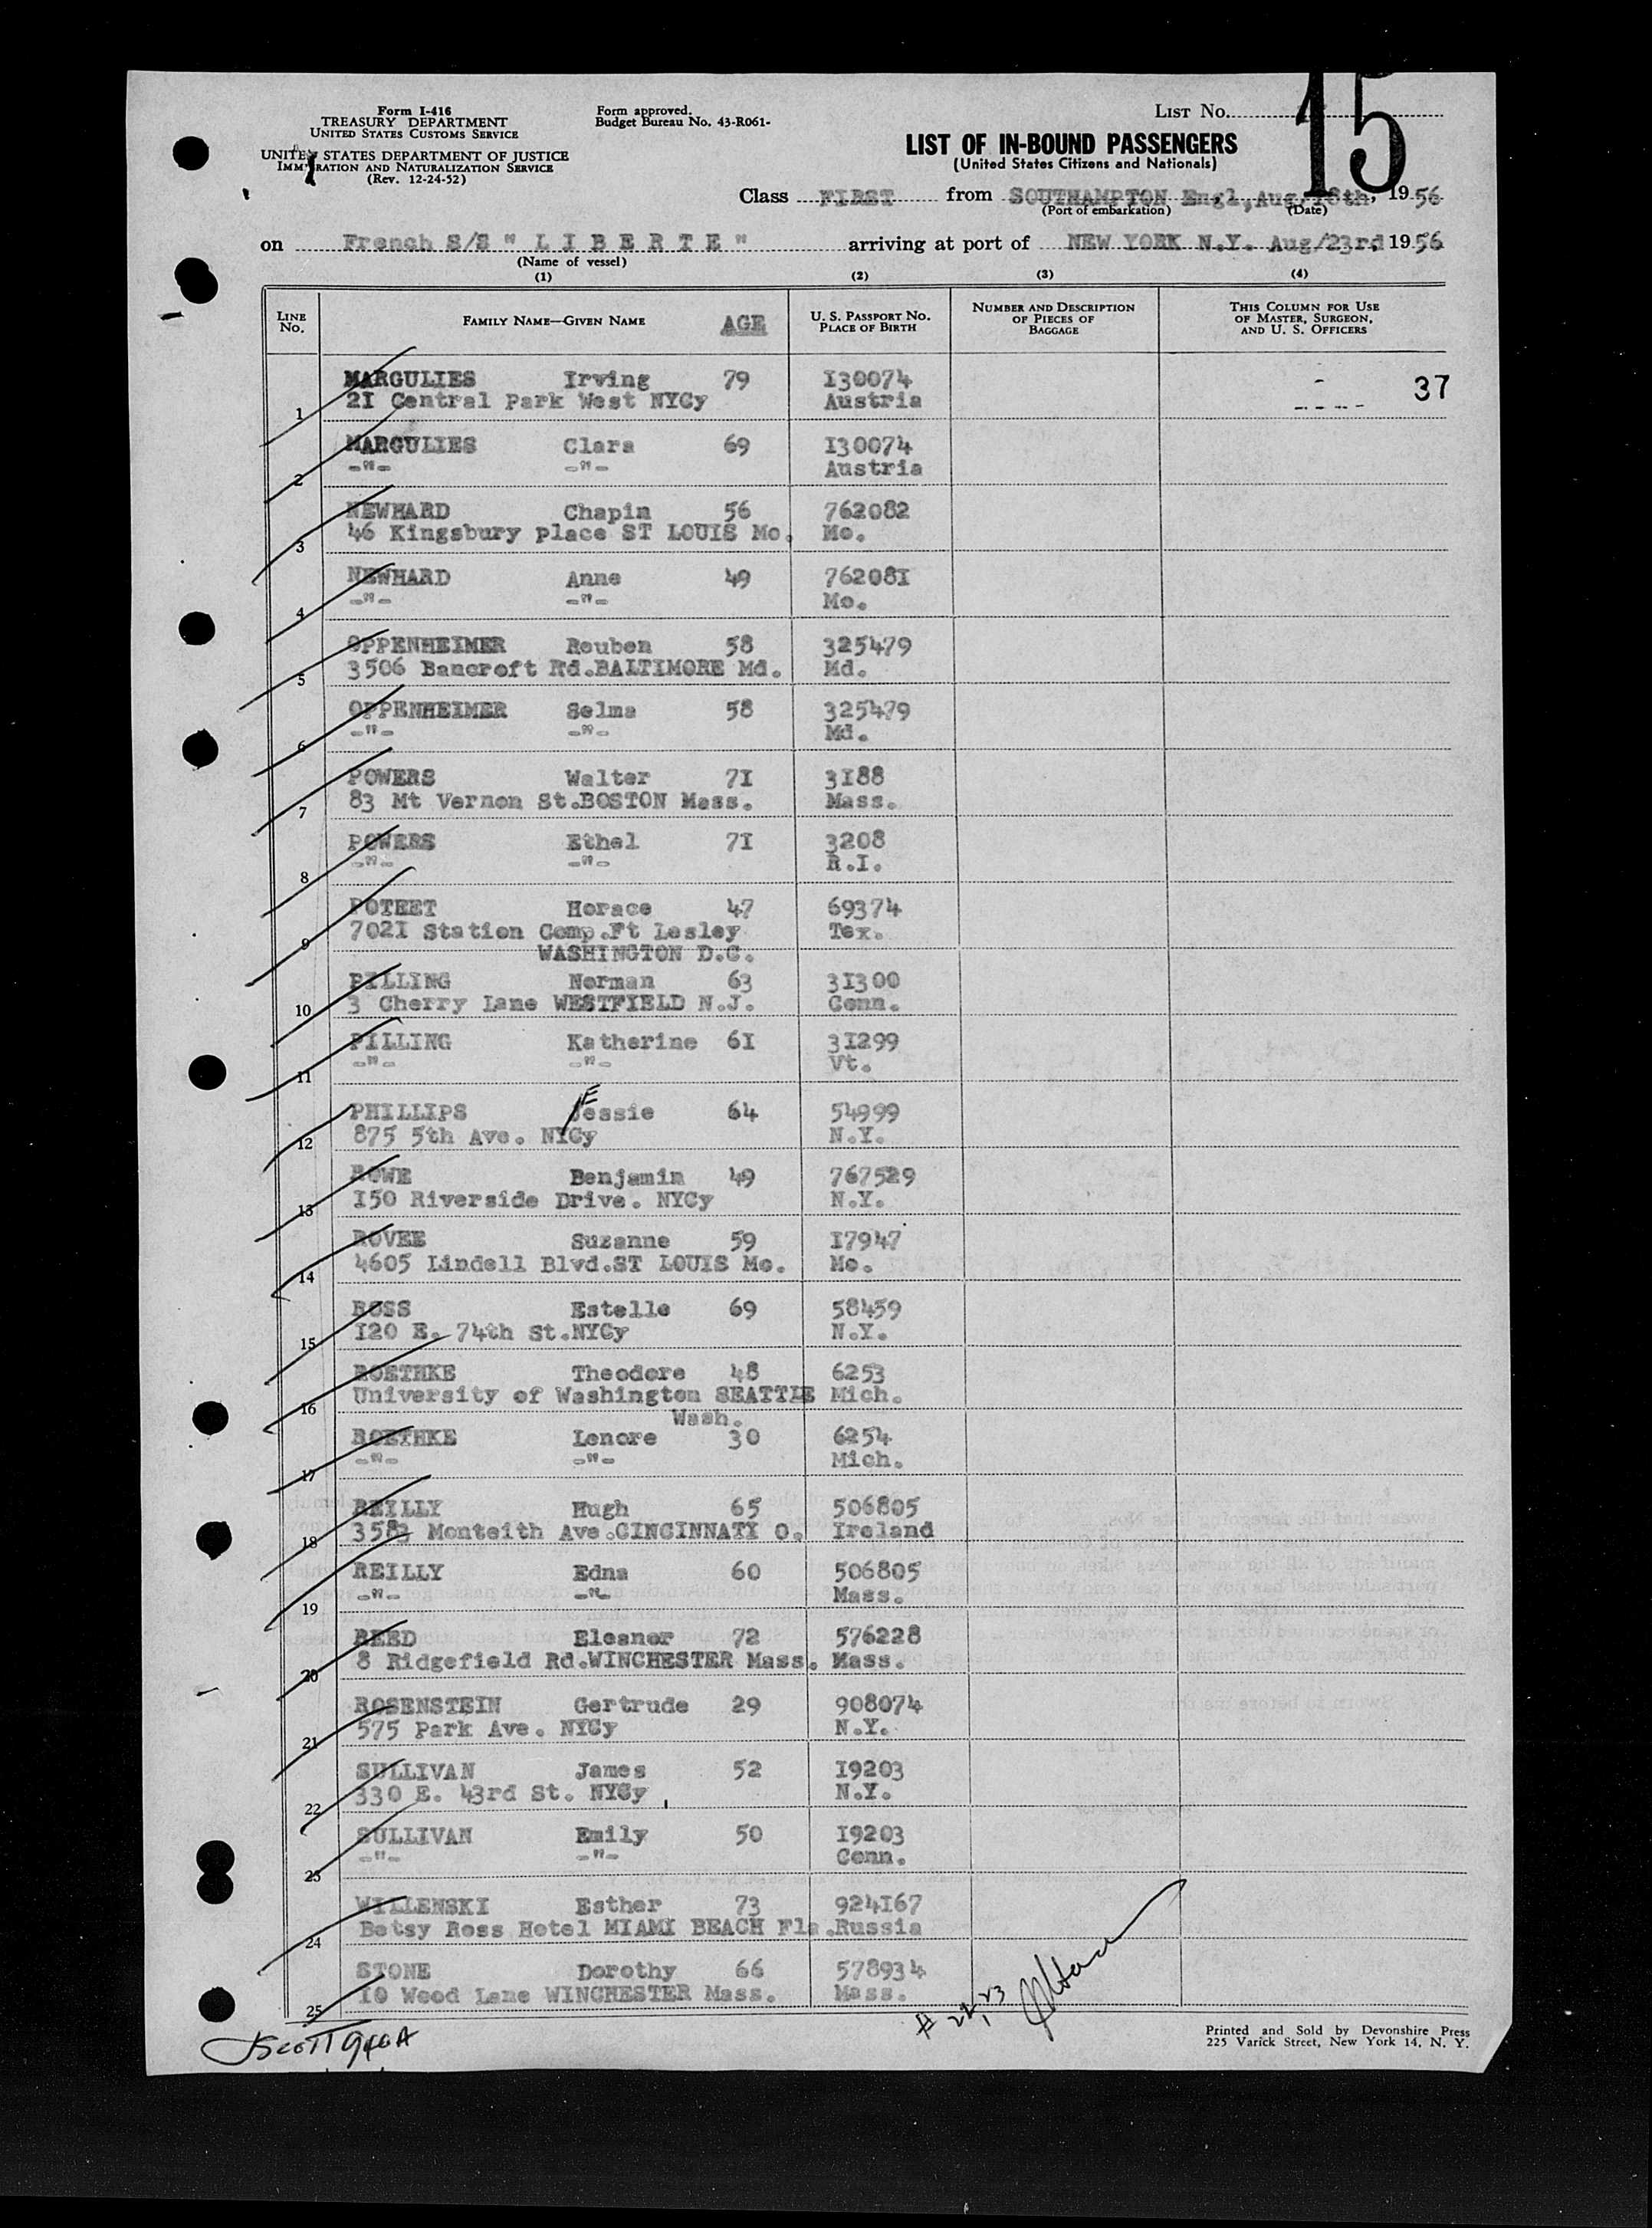 15
Form I-416
TREASURY DEPARTMENT
UNITED STATES CUSTOMS SERVICE
UNITED STATES DEPARTMENT OF JUSTICE
IMMIGRATION AND NATURALIZATION SERVICE
(Rev. 12-24-52)
Form approved.
Budget Bureau No. 43-R061-
LIST No.
LIST OF IN-BOUND PASSENGERS
(United States Citizens and Nationals)
Class FIRST from SOUTHAMPTON Engl, Aug/18th, 1956
(Port of embarkation) (Date)
on French S/S " L I B E R T E " arriving at port of NEW YORK N.Y. Aug/23rd 1956
(Name of vessel)
(1) (2) (3) (4)
LINE No. FAMILY NAME—GIVEN NAME AGE U. S. PASSPORT No. PLACE OF BIRTH NUMBER AND DESCRIPTION OF PIECES OF BAGGAGE THIS COLUMN FOR USE OF MASTER, SURGEON, AND U. S. OFFICERS
MARGULIES Irving 79 I30074 37
1 2I Central Park West NYCy Austria
MARGULIES Clara 69 I30074
2 -"- -"- Austria
NEWHARD Chapin 56 762082
3 46 Kingsbury place ST LOUIS Mo. Mo.
NEWHARD Anne 49 76208I
4 -"- -"- Mo.
OPPENHEIMER Reuben 58 325479
5 3506 Bancroft Rd.BALTIMORE Md. Md.
OPPENHEIMER Selma 58 325479
6 -"- -"- Md.
POWERS Walter 7I 3I88
7 83 Mt Vernon St.BOSTON Mass. Mass.
POWERS Ethel 7I 3208
8 -"- -"- R.I.
POTEET Horace 47 69374
9 702I Station Comp.Ft Lesley Tex.
WASHINGTON D.C.
PILLING Norman 63 3I300
10 3 Cherry Lane WESTFIELD N.J. Conn.
PILLING Katherine 6I 3I299
11 -"- -"- Vt.
PHILLIPS Jessie 64 54999
12 875 5th Ave. NYCy N.Y.
ROWE Benjamin 49 767529
13 I50 Riverside Drive. NYCy N.Y.
ROVEE Suzanne 59 I7947
14 4605 Lindell Blvd.ST LOUIS Mo. Mo.
ROSS Estelle 69 58459
15 I20 E. 74th St.NYCy N.Y.
ROETHKE Theodore 48 6253
16 University of Washington SEATTLE Mich.
Wash.
ROETHKE Lenore 30 6254
17 -"- -"- Mich.
REILLY Hugh 65 506805
18 3583 Monteith Ave.CINCINNATI O. Ireland
REILLY Edna 60 506805
19 -"- -"- Mass.
REED Eleanor 72 576228
20 8 Ridgefield Rd.WINCHESTER Mass. Mass.
ROSENSTEIN Gertrude 29 908074
21 575 Park Ave. NYCy N.Y.
SULLIVAN James 52 I9203
22 330 E. 43rd St. NYCy N.Y.
SULLIVAN Emily 50 I9203
23 -"- -"- Conn.
WILLENSKI Esther 73 924I67
24 Betsy Ross Hotel MIAMI BEACH Fla.Russia
STONE Dorothy 66 578934
25 I0 Wood Lane WINCHESTER Mass. Mass.
# 22, 23
Printed and Sold by Devonshire Press
225 Varick Street, New York 14, N. Y.